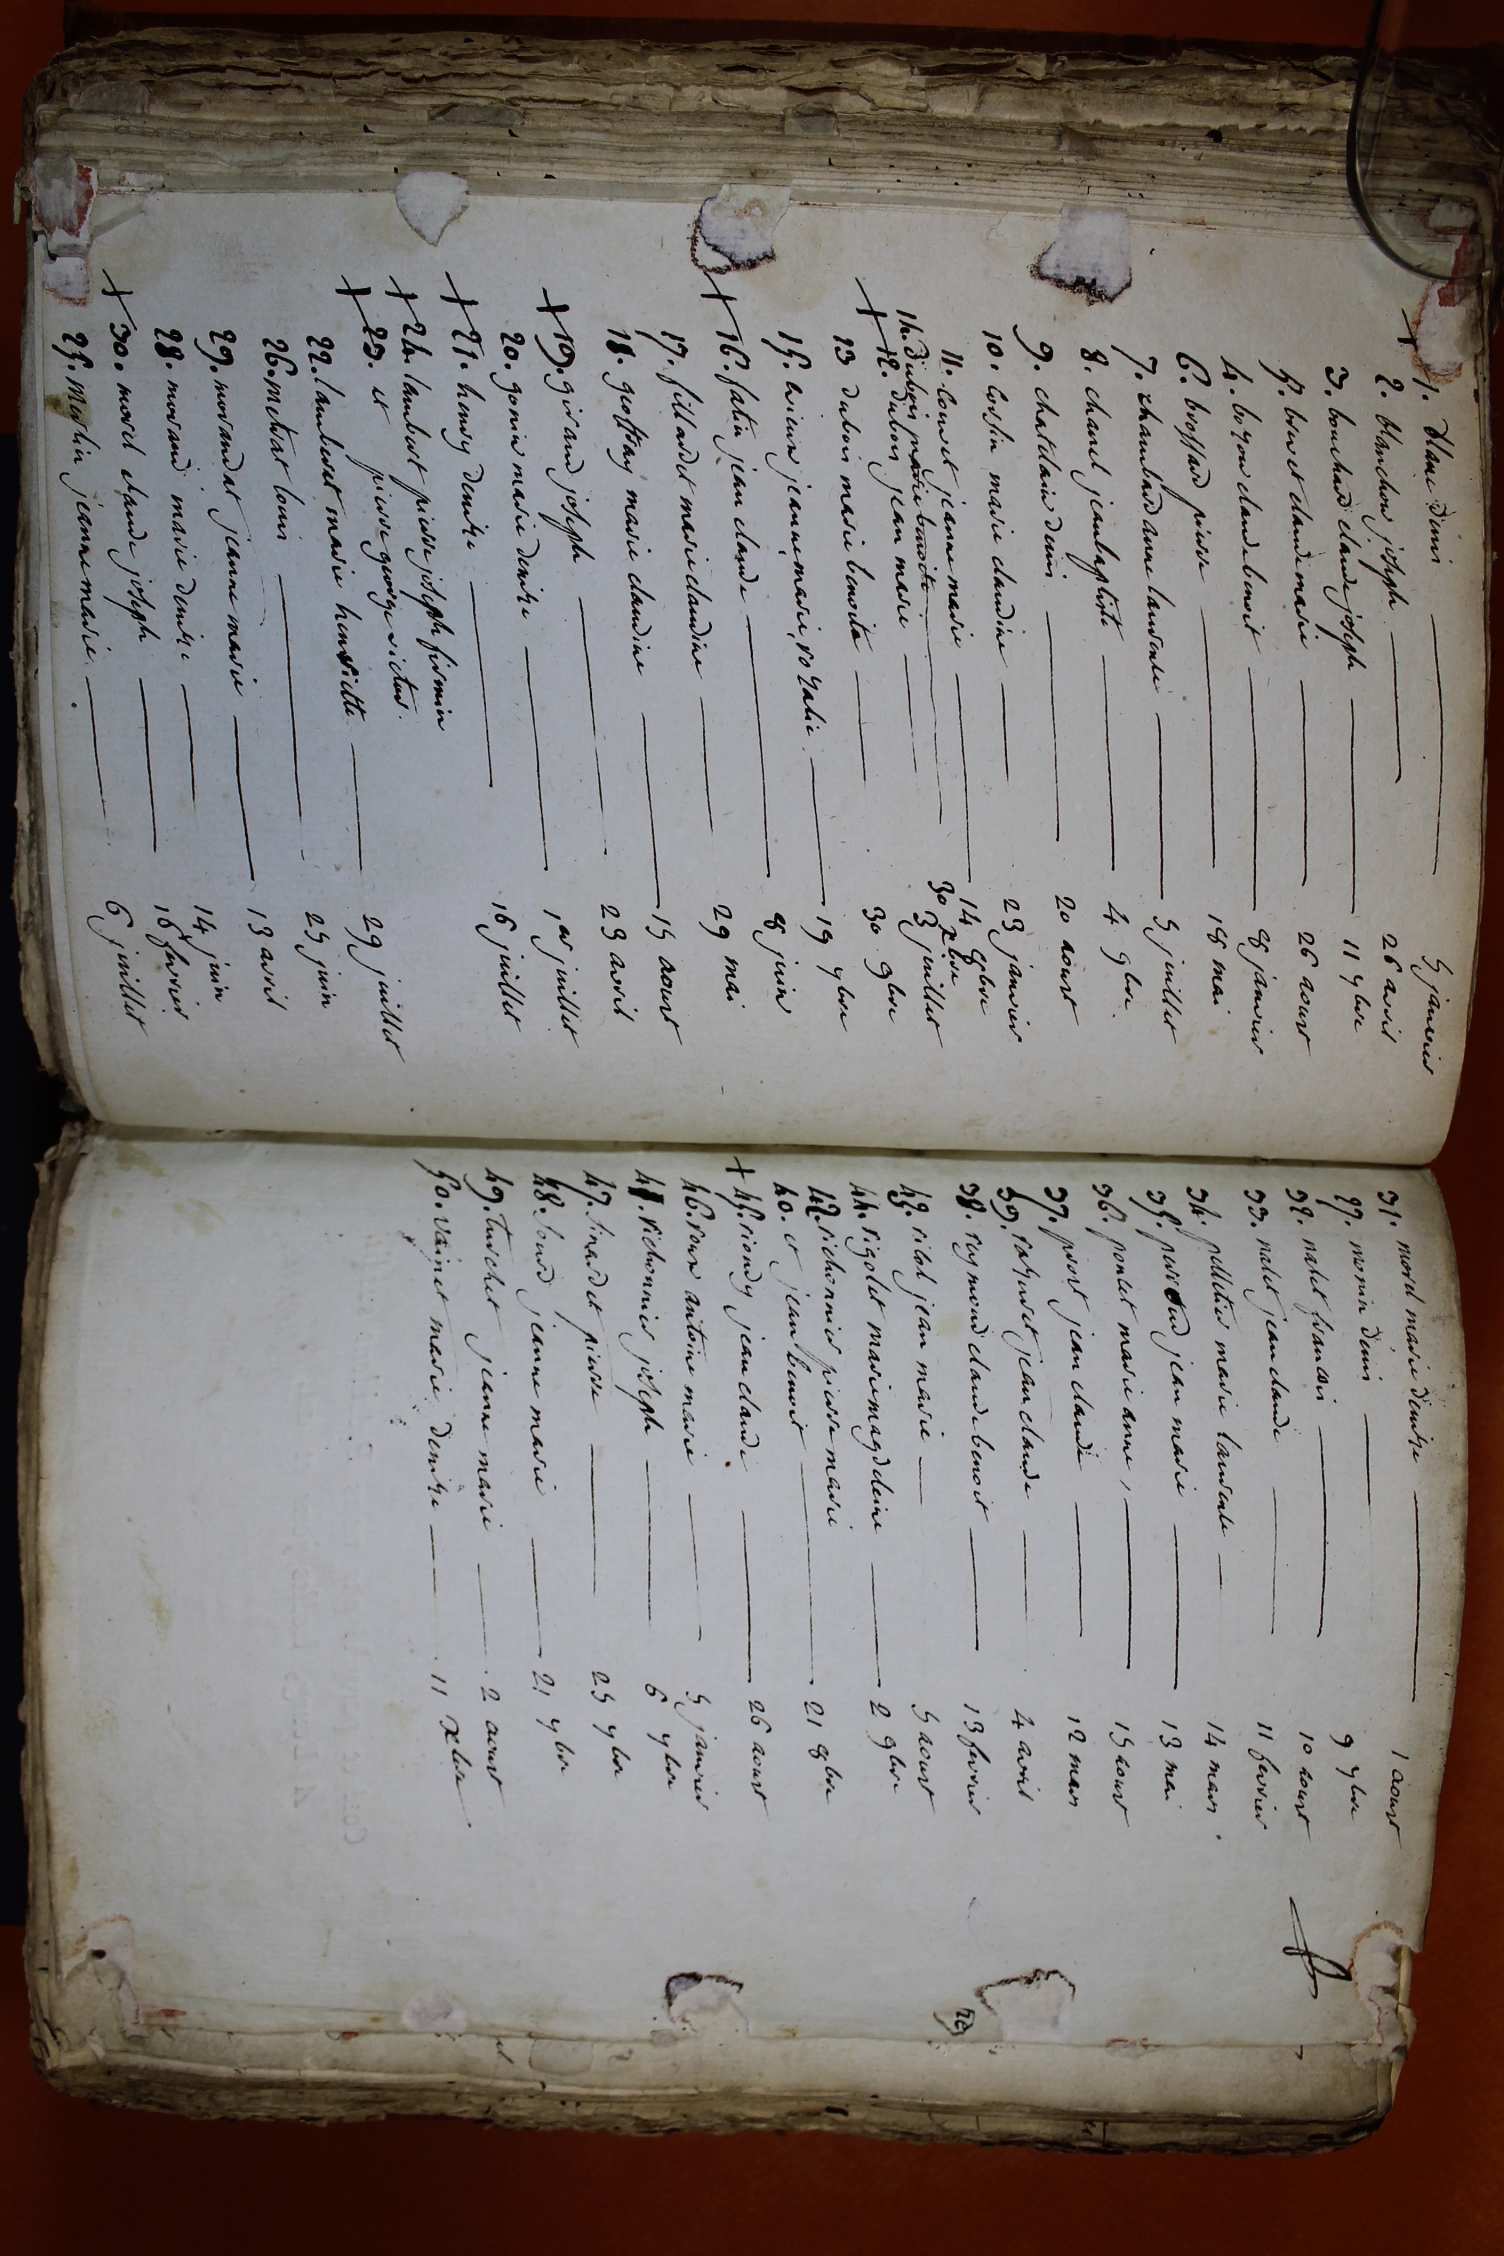 + 1. blanc denis — 5 janvier
2. blanchon joseph — 26 avril
3. bouchard claude joseph — 11 9bre
5. brevet claude marie — 26 aoust
4. boyon claude benoit — 8 janvier
6. brossard pierre — 18 mai
7. chambard anne laurence — 5 juillet
8. chanel jean baptiste — 4 9bre
9. chatelain denis — 20 aoust
10. marie claudine — 23 janvier
11. jeanne marie — 14 8bre
14. dubois marie benoite — 30 xbre
+ 12. dubois jean marie — 3 juillet
13 dubois marie benoite — 30 9bre
15. jeanne marie rozalie — 19 9bre
+ 16. fatin jean claude — 8 juin
17. fillardet marie claudine — 29 mai
18. geoffray marie claudine — 15 aoust
+ 19. giraud joseph — 23 avril
20. gonin marie denise — 1er juillet
+ 21. henry denise — 16 juillet
+ 24. lambert pierre joseph firmin
+ 23. et pierre george victor.
22. lamberet marie henriette — 29 juillet
26. metrat louis — 25 juin
29. morandat jeanne marie — 13 avril
28. morand marie denise — 14 juin
+ 30. morel claude joseph — 16 fevrier
25. merlin jeanne marie — 6 juillet
31. morel marie denise — 1 aoust
27. monin denis — 9 9bre
32. nalet francois — 10 aoust
33. nalet jean claude — 11 fevrier
34. pelletier marie laurence — 14 mars.
35. jean marie — 13 mai
36. poncet marie anne, — 15 aoust
37. jean claude — 12 mars
39. jean claude — 4 avril
38. raymond claude benoit — 13 fevrier
43. jean marie — 5 aoust
44. rigolet marie magdeleine — 2 9bre
42. richonnier pierre marie
40. et jean benoit — 21 8bre
+ 45. riondy jean claude — 26 aoust
46. roux antoine marie — 5 janvier
41. richonnier joseph — 6 9bre
47. sinardet pierre — 25 9bre
48. jeanne marie — 21 9bre
49. turchet jeanne marie — 2 aoust
50. marie denise — 11 xbre